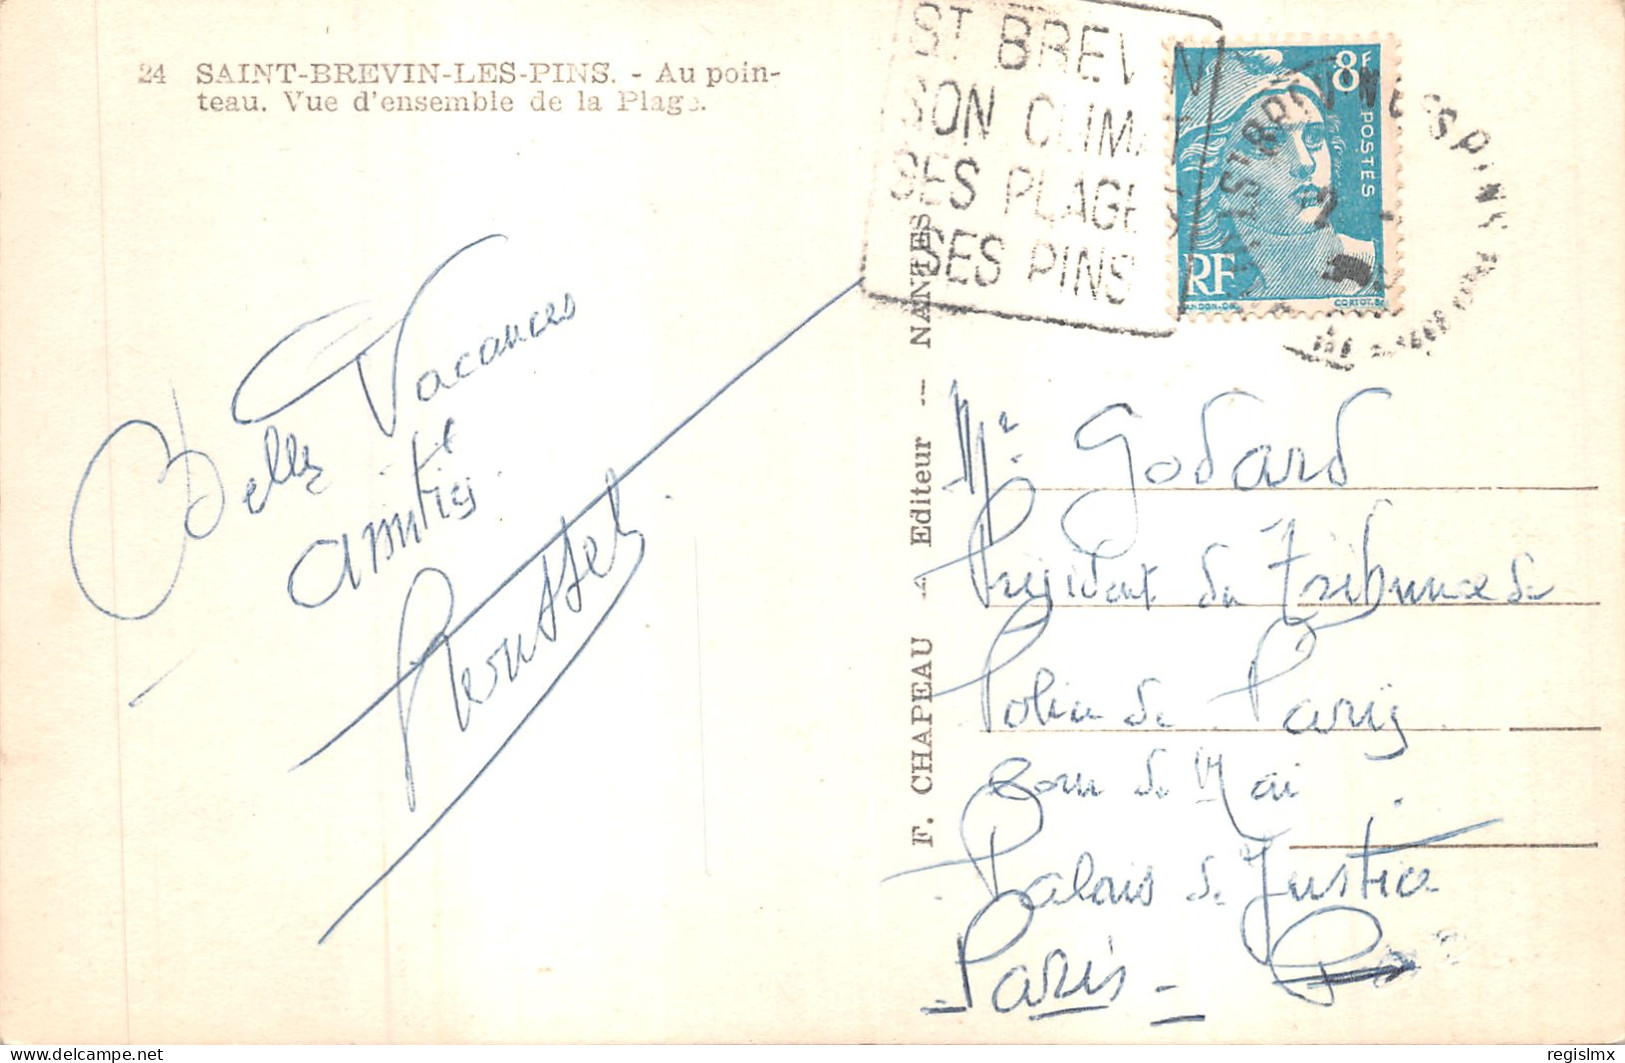 24 SAINT-BREVIN-LES-PINS. - Au poin-
teau. Vue d'ensemble de la Plage.
ST BREVIN
SON CLIMAT
SES PLAGES
SES PINS
8F
POSTES
RF
GANDON.DEL
CORTOT.SC
ST BREVIN LES PINS
Belles Vacances
amitiés
Roussel
F. CHAPEAU - Editeur - NANTES
Mr Godard
Président du Tribunal de
Police de Paris
Cour de Mai
Palais de Justice
Paris -
regislmx